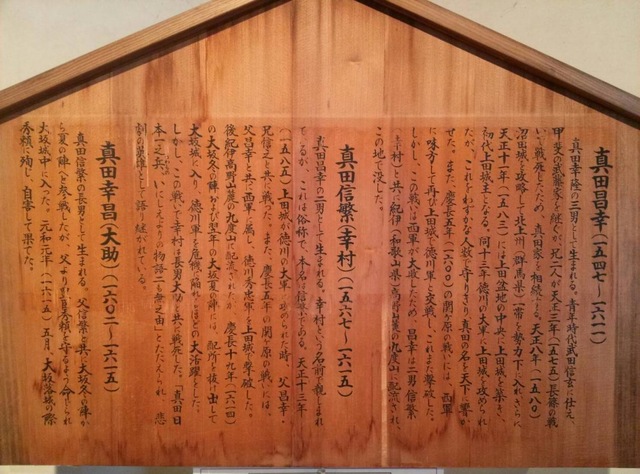 真田昌幸(一五四七〜一六一一)
真田幸隆の三男として生まれる。青年時代武田信玄に仕え、
甲斐の武藤家を継ぐが、兄二人が天正三年(一五七五)長篠の戦
いで戦死したため、真田家を相続する。天正八年(一五八〇)
沼田城を攻略して北上州(群馬県)一帯を勢力下に入れ、さらに
天正十一年(一五八三)には上田盆地の中央に上田城を築き、
初代上田城主となる。同十三年徳川の大軍に上田城を攻められ
たが、これをわずかな人数で守りきり、真田の名を天下に響か
せた。また慶長五年(一六〇〇)の関ヶ原の戦いには、西軍
に味方して再び上田城で徳川軍と交戦し、これまた撃破した。
しかし、この戦いは西軍が大敗したため、昌幸は二男信繁
(幸村)と共に紀伊(和歌山県)高野山麓の九度山に配流され、
この地で没した。
真田信繁(幸村)(一五六七〜一六一五)
真田昌幸の二男として生まれる。幸村という名前で親しまれ
ているが、これは俗称で、本名は信繁である。天正十三年
(一五八五)上田城が徳川の大軍に攻められた時、父昌幸・
兄信之と共に戦った。また、慶長五年の関ヶ原の戦いには、
父昌幸と共に西軍に属し、徳川秀忠軍を上田城で撃破した。
後紀伊高野山麓の九度山に配流されたが、慶長十九年(一六一四)
の大坂冬の陣および翌年の大坂夏の陣には、配所を抜け出して
大坂城に入り、徳川軍を危機に陥れるほどの大活躍をした。
しかし、この戦いで幸村は長男大助と共に戦死した。「真田日
本一之兵、いにしえよりの物語ニも無之由」とたたえられ、悲
劇の英雄として語り継がれている。
真田幸昌(大助)(一六〇二〜一六一五)
真田信繁の長男として生まれる。父信繁と共に大坂冬の陣か
ら夏の陣へと参戦したが、父より豊臣秀頼を守るよう命じられ
大坂城中に入った。元和元年(一六一五)五月、大坂落城の際
秀頼に殉じ、自害して果てた。